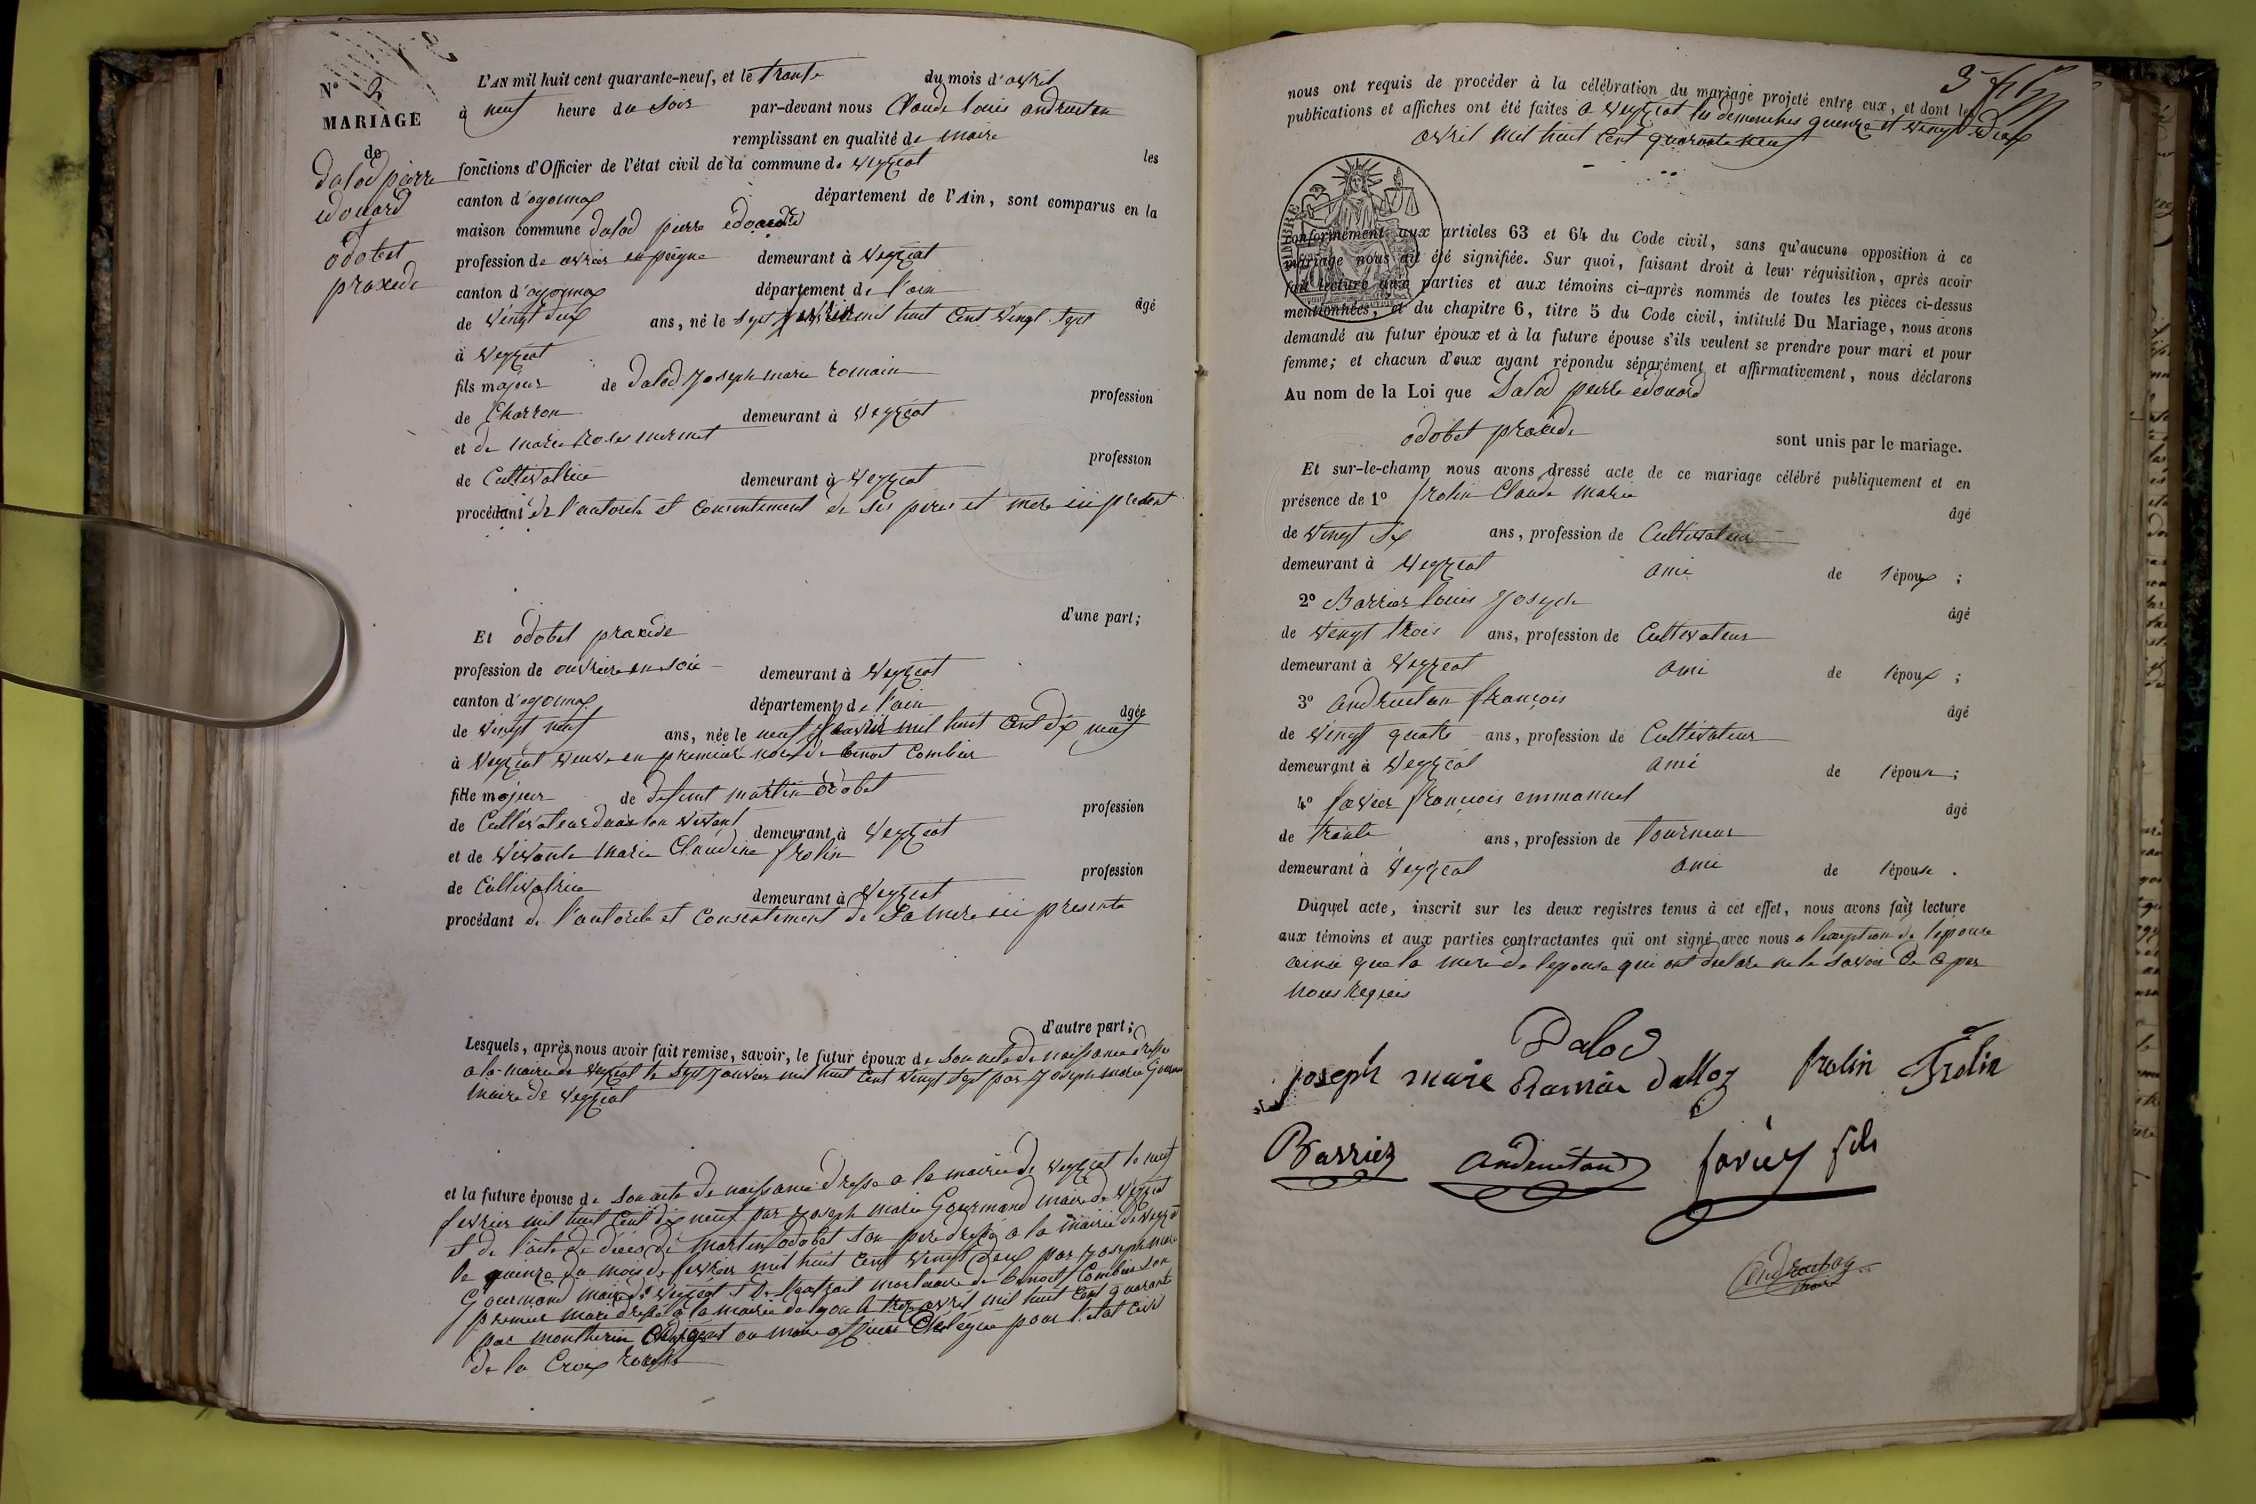 N° 2
MARIAGE
de
dalod pierre
edouard
et
odobet
praxede
L'AN mil huit cent quarante-neuf, et le trente du mois d'avril
à neuf heure du soir par-devant nous Claude louis andruetan
remplissant en qualité de maire les
fonctions d'Officier de l'état civil de la commune de veyziat
canton d'oyonnax département de l'Ain, sont comparus en la
maison commune dalod pierre edouard
profession de ovrier en peigne demeurant à veyziat
canton d'oyonnax département de l'ain âgé
de vingt deux ans, né le sept janvier mil huit cent vingt sept
à veyziat
fils majeur de dalod joseph marie romain profession
de Charron demeurant à veyziat
et de marie rose mermet profession
de Cultivatrice demeurant à veyziat
procédant de l'autorite et consentement de ses peres et mere ici present
d'une part;
Et odobet praxede
profession de ouvriere en soie demeurant à veyziat
canton d'oyonnax département de l'ain âgée
de vingt neuf ans, née le neuf fevrier mil huit cent dix neuf
à veyziat veuve en premiere noce de benoit Combier
fille majeur de defunt martin odobet profession
de Cultivateur dans son vivant demeurant à veyziat
et de vivante marie Claudine frolin profession
de Cultivatrice demeurant à veyziat
procédant de l'autorite et consentement de sa mere ici presente
d'autre part;
Lesquels, après nous avoir fait remise, savoir, le futur époux de son acte de naissance dresse
a la mairie de veyziat le sept janvier mil huit cent vingt sept par joseph marie Gourmand
maire de veyziat
et la future épouse de son acte de naissance dresse a la mairie de veyziat le neuf
fevrier mil huit cent dix neuf par joseph marie Gourmand maire de veyziat
et de l'acte de deces de martin odobet son pere dresse a la mairie de veyziat
le quinze du mois de fevrier mil huit cent vingt deux par joseph marie
Gourmand maire de veyziat et de l'extrait mortuaire de benoit Combier son
premier mari dresse a la mairie de lyon le avril mil huit cent quarante
par ou maire officier delegue pour l'etat civil
de la Croix rousse
nous ont requis de procéder à la célébration du mariage projeté entre eux, et dont les
publications et affiches ont été faites a veyziat les demenches quenze et vingt deux
avril mil huit cent quarante neuf
TIMBRE
conformément aux articles 63 et 64 du Code civil, sans qu'aucune opposition à ce
mariage nous ait été signifiée. Sur quoi, faisant droit à leur réquisition, après avoir
fait lecture aux parties et aux témoins ci-après nommés de toutes les pièces ci-dessus
mentionnées, et du chapitre 6, titre 5 du Code civil, intitulé Du Mariage, nous avons
demandé au futur époux et à la future épouse s'ils veulent se prendre pour mari et pour
femme; et chacun d'eux ayant répondu séparément et affirmativement, nous déclarons
Au nom de la Loi que Dalod pierre edouard
odobet praxede sont unis par le mariage.
Et sur-le-champ nous avons dressé acte de ce mariage célébré publiquement et en
présence de 1° frolin Claude marie âgé
de vingt six ans, profession de Cultivateur
demeurant à veyziat ami de l'époux ;
2° Barrier louis joseph âgé
de vingt trois ans, profession de Cultivateur
demeurant à veyziat ami de l'époux ;
3° andruetan françois âgé
de vingt quatre ans, profession de Cultivateur
demeurant à veyziat ami de l'épouse ;
4° favier françois emmanuel âgé
de trente ans, profession de tourneur
demeurant à veyziat ami de l'épouse .
Duquel acte, inscrit sur les deux registres tenus à cet effet, nous avons fait lecture
aux témoins et aux parties contractantes qui ont signé avec nous a l'exception de l'epouse
ainsi que la mere de l'epouse qui ont declare ne le savoir de ce par
nous requis
Dalod
joseph marie Ramain dalloz frolin Frolin
Barrier andruetan favier fils
maire